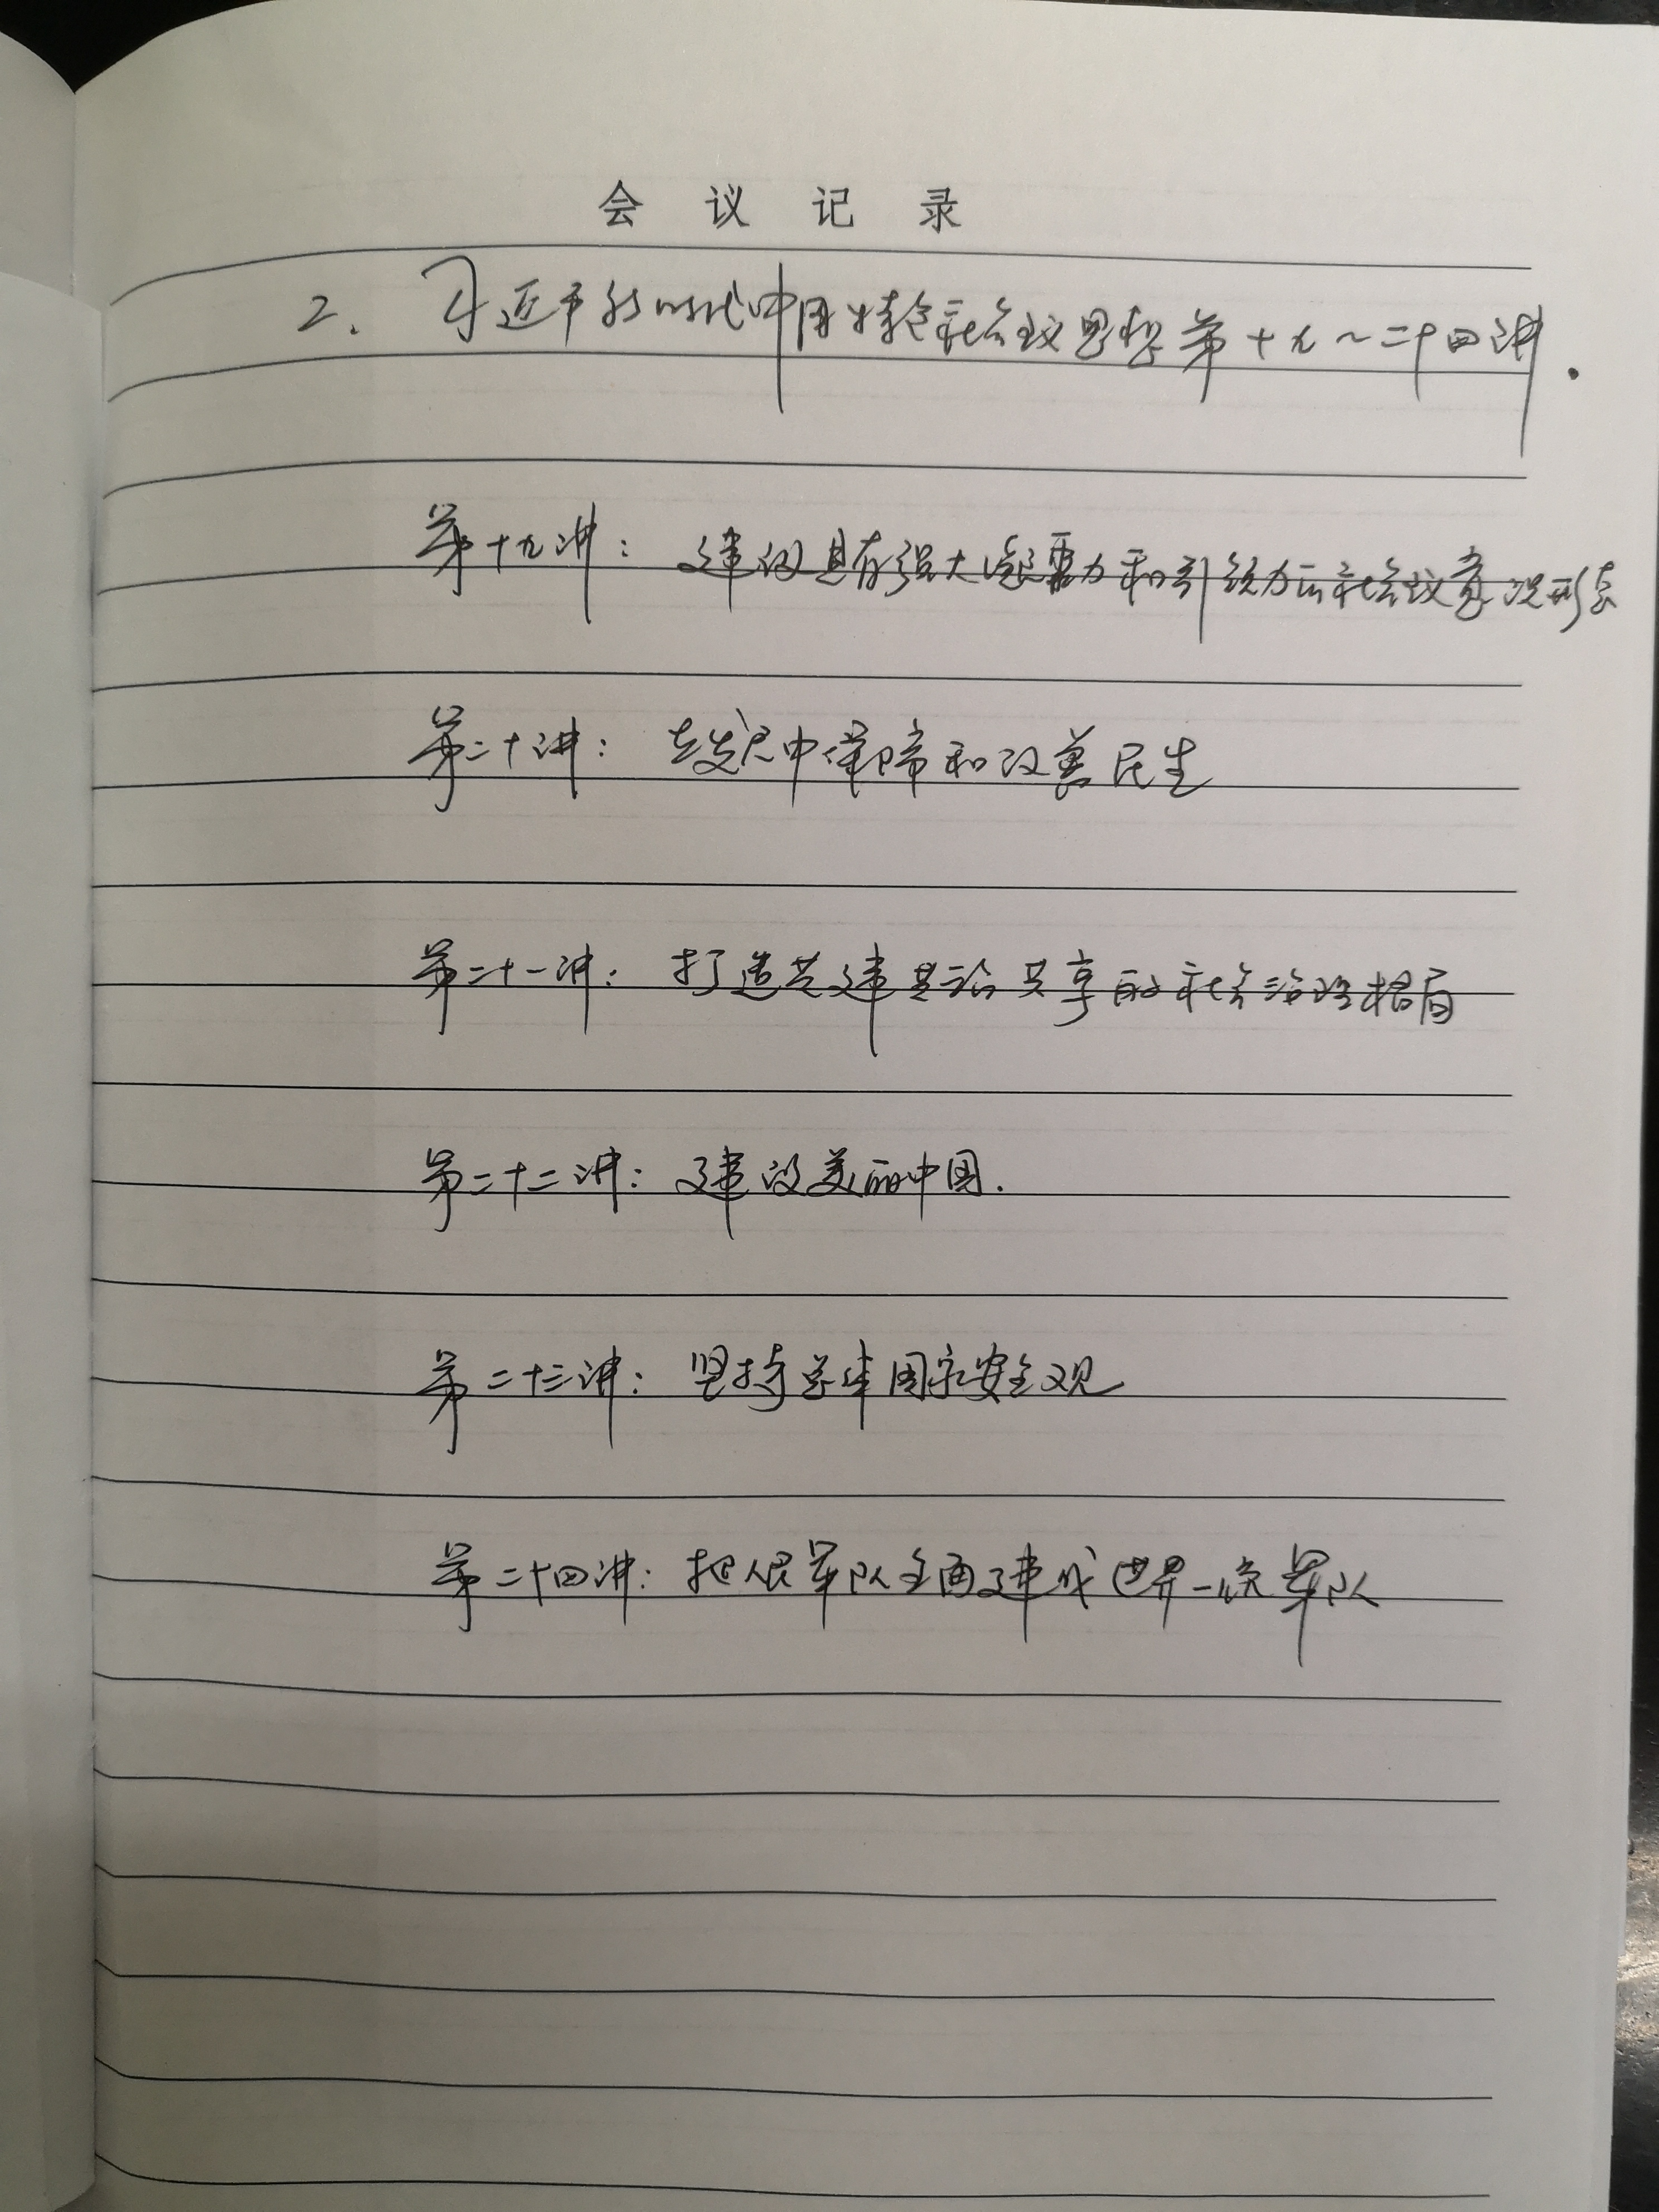 会议记录
2. 习近平新时代中国特色社会主义思想第十九~二十四讲.
第十九讲: 建设具有强大凝聚力和引领力的社会主义意识形态
第二十讲: 在发展中保障和改善民生
第二十一讲: 打造共建共治共享的社会治理格局
第二十二讲: 建设美丽中国.
第二十三讲: 坚持总体国家安全观
第二十四讲: 把人民军队全面建成世界一流军队